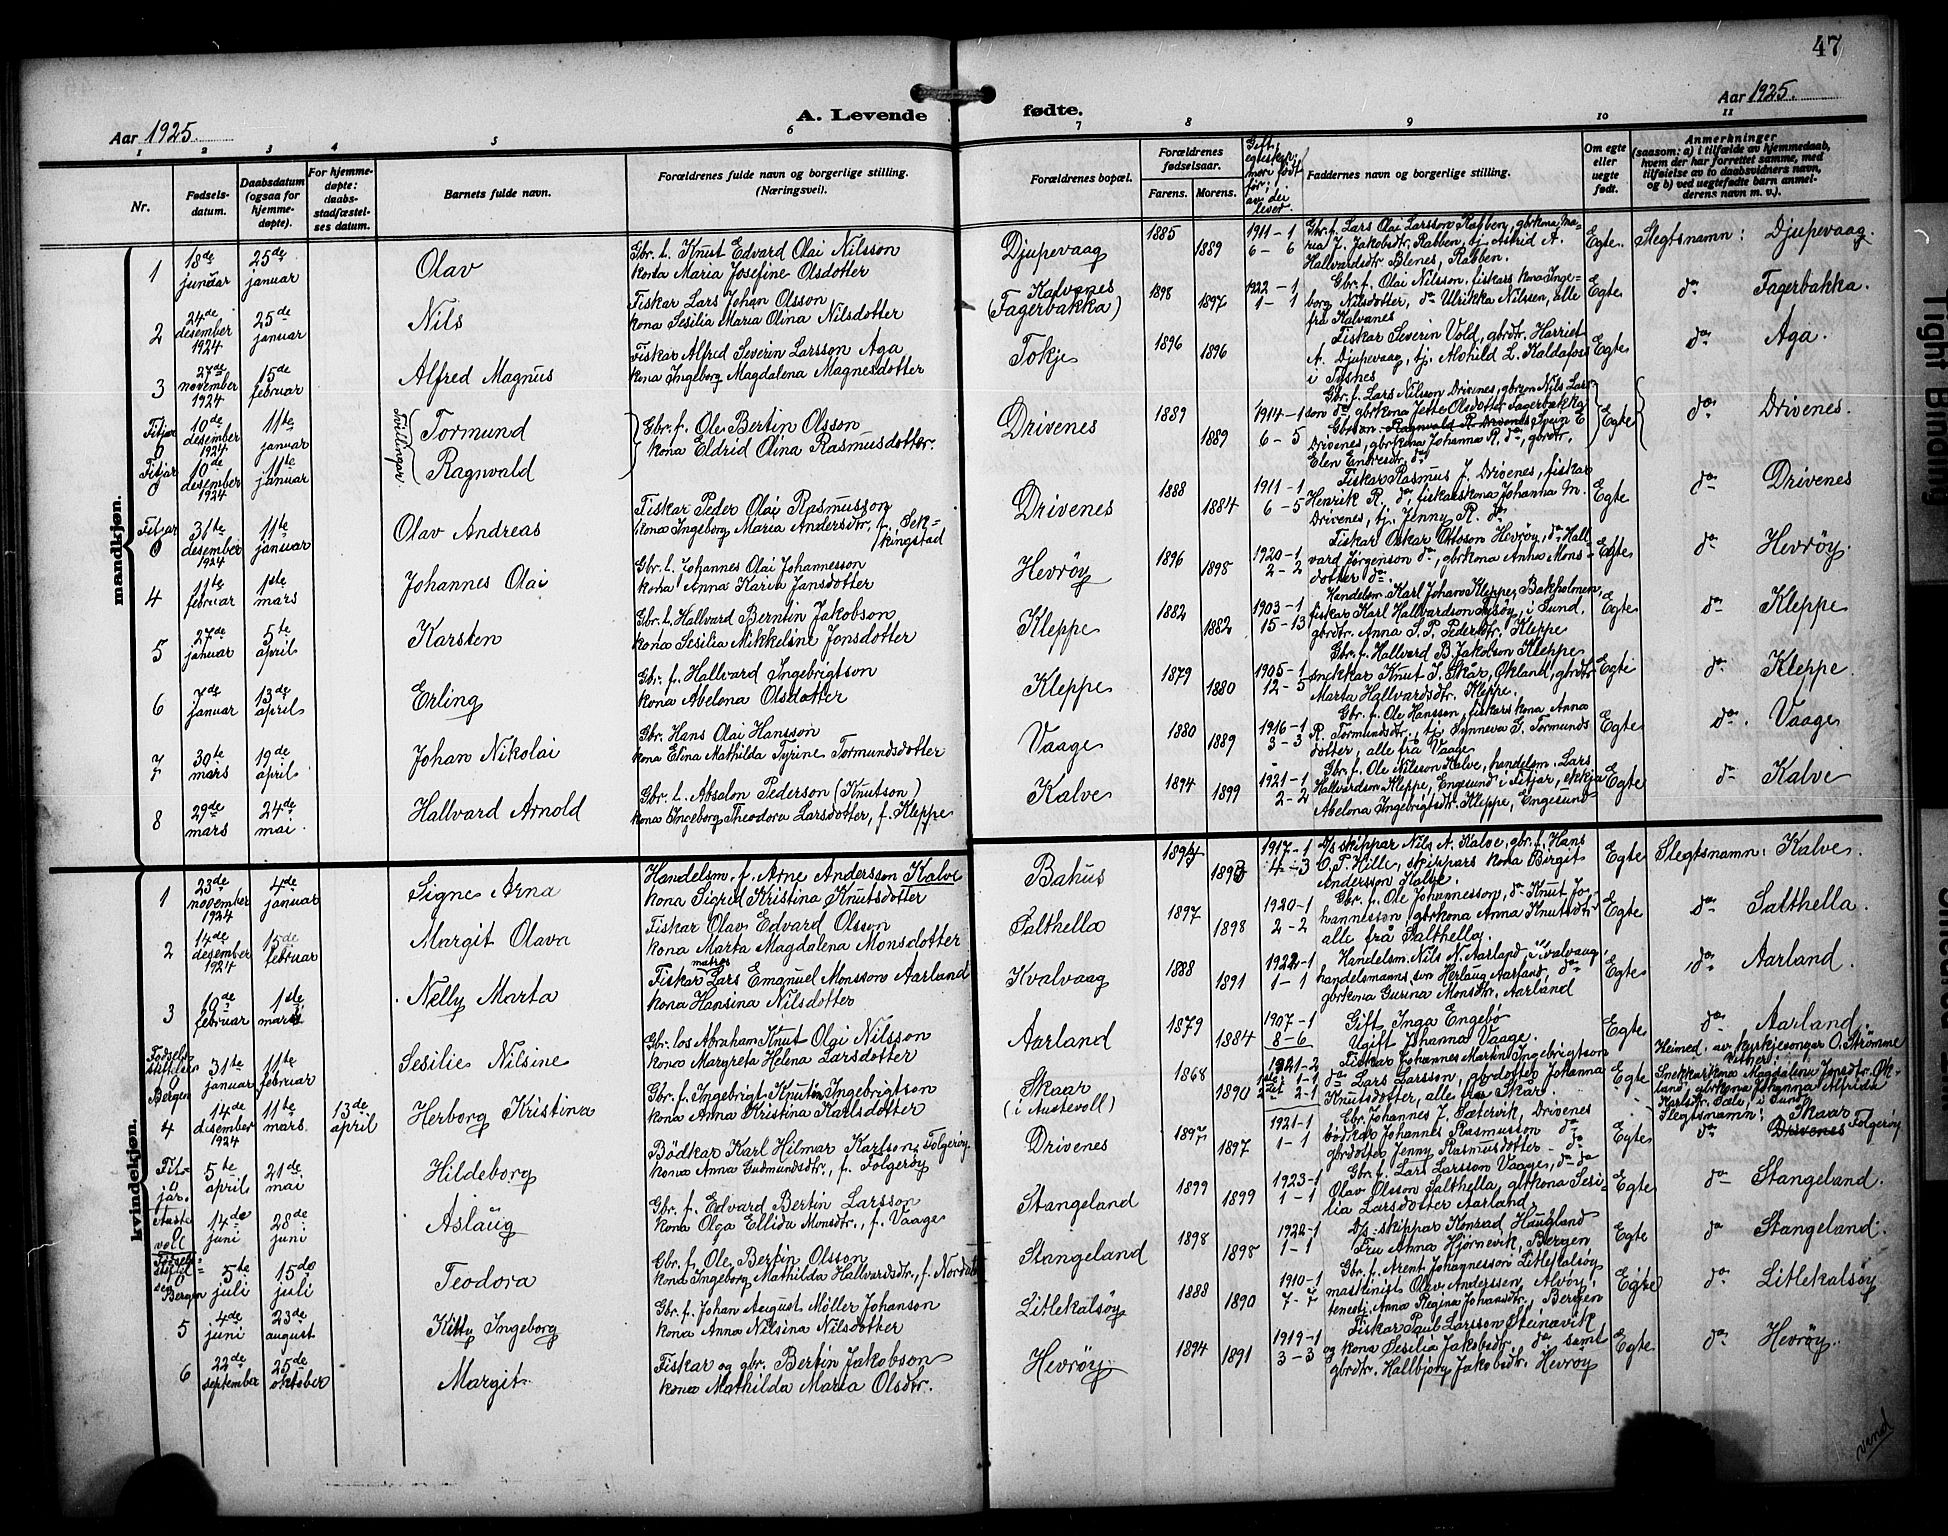 47
A. Levende fødte.
Aar 1925.
Aar 1925.
1 2 3 4 5 6 7 8 9 10 11
Nr.
Fødselsdatum.
Daabsdatum (ogsaa for hjemmedøpte).
For hjemmedøpte: daabsstadfæstelses datum.
Barnets fulde navn.
Forældrenes fulde navn og borgerlige stilling. (Næringsvei).
Forældrenes bopæl.
Forældrenes fødselsaar.
Farens. Morens.
Gift; egteskap; mor født før; av dei lever.
Faddernes navn og borgerlige stilling.
Om egte eller uegte født.
Anmerkninger (saasom: a) i tilfælde av hjemmedaab, hvem der har forrettet samme, med tilføielse av to daabsvidners navn, og b) ved uegtefødte barn anmelderens navn m. v.).
mandkjøn.
1 18de januar 25de januar Olav
Gbr. l. Knut Edvard Olai Nilsson
kona Maria Josefine Olsdotter
Djupevaag 1885 1889 1911-1 6-6
Gbr. f. Lars Olai Larsson Rabben, gbrkona Maria J. Jakobsdtr. Rabben, tj. Astrid A. Hallvardsdtr Blenes, Rabben.
Egte Slegtsnamn: Djupevaag.
2 24de desember 1924 25de januar Nils
Fiskar Lars Johan Olsson
kona Sesilia Maria Olina Nilsdotter
Kalvenes (Fagerbakka) 1898 1897 1922-1 1-1
Gbr. f. Olai Nilsson, fiskars kona Ingeborg Nilsdotter, do Ulrikka Nilssen, alle frå Kalvanes
Egte do Fagerbakka.
3 27de november 1924 15de februar Alfred Magnus
Fiskar Alfred Severin Larsson Aga
kona Ingeborg Magdalena Magnesdotter
Tokje 1896 1896
Fiskar Severin Vold, gbrdtr. Harriet A. Djupevaag, tj. Alvhild L. Kaldafoss i Tysnes
Egte do Aga.
Fitjar 0 10de desember 1924 11te januar Tormund
Tvillingar
Fitjar 0 10de desember 1924 11te januar Ragnvald
Gbr. f. Ole Bertin Olsson
kona Eldrid Olina Rasmusdotter.
Drivenes 1889 1889 1914-1 6-5
Gbr. f. Lars Nilson Drivenes, gbrson Nils Larsson do, gbrkona Jette Olsdotter Fagerbakka
Gbrson Ragnvald R. Drivenes, Svein E Drivenes, gbrkona Johanna R. do, gbrdtr. Elen Endresdtr. do
Egte do Drivenes.
Fitjar 0 31te desember 1924 11te januar Olav Andreas
Fiskar Peder Olai Rasmusson
kona Ingeborg Maria Andersdtr. f. Sekkingstad
Drivenes 1888 1884 1911-1 6-5
Fiskar Rasmus J. Drivenes, fiskar Henrik R. do, fiskarskona Johanna M. Drivenes, tj. Jenny R. do
Egte do Drivenes
4 11te februar 1ste mars Johannes Olai
Gbr. l. Johannes Olai Johannesson
kona Anna Karia Jansdotter
Hevrøy 1896 1898 1920-1 2-2
Fiskar Oskar Ottoson Hevrøy, do Hallvard Jørgenson do, gbrkona Anna Monsdotter do.
Egte do Hevrøy.
5 27de januar 5te april Karsten
Gbr. l. Hallvard Berntin Jakobson
kona Sesilia Mikkeline Jonsdotter
Kleppe 1882 1882 1903-1 15-13
Handelsm. Karl Johan Kleppe, Bakholmen, fiskar Karl Hallvardson Rysøy, i Sund, gbrdtr. Anna S. P. Pedersdtr. Kleppe
Egte do Kleppe
6 7de januar 13de april Erling
Gbr. f. Hallvard Ingebrigtson
kona Abelona Olsdotter
Kleppe 1879 1880 1905-1 12-5
Gbr. f. Hallvard B. Jakobson Kleppe, snekkar Knut I. Skår, Økland, gbrdtr Marta Hallvardsdtr. Kleppe.
Egte do Kleppe.
7 30te mars 19de april Johan Nikolai
Gbr. Hans Olai Hansson
kona Elina Mathilda Tyrine Tormundsdotter
Vaage 1880 1889 1916-1 3-3
Gbr. f. Ole Hansson, fiskars kona Anna R. Tormundsdtr., tj. Synneva G. Tormundsdotter, alle frå Vaage
Egte do. Vaage
8 29de mars 24de mai. Hallvard Arnold
Gbr. l. Absalon Pederson (Knutson)
kona Ingeborg Theodora Larsdotter, f. Kleppe
Kalve 1894 1899 1921-1 2-2
Gbr. f. Ole Nilsson Kalve, handelsm. Lars Hallvardsm Kleppe, Engesund i Fitjar, ekkja Abelona Ingebrigtsdtr. Kleppe, Engesund
Egte do Kalve
kvindekjøn.
1 23de november 1924 4de januar Signe Arna
Handelsm. f. Arne Andersson Kalve
kona Sigrid Kristina Knutsdotter
Bakus 1894 1893 1917-1 4-3
D/s skippar Nils A. Kalve, gbr. f. Hans O. P. Hille, skippars kona Birgit Andersson Kalve
Egte Slegtsnamn: Kalve.
2 14de desember 1924 15de februar Margit Olava
Fiskar Olav Edvard Olsson
kona Marta Magdalena Monsdotter
Salthella 1897 1898 1920-1 2-2
Gbr. f. Ole Johannesson, do Knut Johannesson gbrkona Anna Knutsdtr. alle frå Salthella.
Egte do Salthella.
3 10de februar 1ste mars Nelly Marta
Fiskar matros Lars Emanuel Monsson Aarland
kona Hansina Nilsdotter
Kvalvaag 1888 1891 1922-1 1-1
Handelsm. Nils N. Aarland, i Kvalvaag, handelsmanns son Herlaug Aarland, do gbrkona Gurina Monsdtr. Aarland
Egte do Aarland.
Fødselsstiftelsen 0 Bergen 31te januar 11te februar Sesilie Nilsine
Gbr. los Abraham Knut Olai Nilsson
kona Margreta Helena Larsdotter
Aarland 1879 1884 1907-1 8-6
Gift Inga Engebø
Ugift Johanna Vaage.
Egte do Aarland.
4 14de desember 1924 11te mars. 13de april Herborg Kristina
Gbr. f. Ingebrigt Knuton Ingebrigtson
kona Anna Kristina Karlsdotter
Skaar (i Austevoll) 1868 1890 1921-2 1ste 1-1 2det 2-1
Fiskar Johannes Martin Ingebrigtson do Lars Larsson, gbrdotter Johanna Knutsdotter, alle Skår.
Egte Heimed. av kyrkjesongar O. Strømme
Vitner: Snekkarkona Magdalena Jonsdtr. Økland, gbrkona Johanna Alfrida Karlsdtr. Sæle, i Sund
Slegtsnamn: Skaar
Fitjar. 0 5te april 21de mai Hildeborg
Bødkar Karl Hilmar Karlson Folgerøy
kona Anna Gudmundsdtr., f. Folgerøy
Drivenes 1897 1897 1921-1 1-1
Gbr. Johannes J. Sætervik, Drivenes bødkar Johannes Rasmusson do gbrdotter Jenny Rasmusdotter do
Egte do Drivenes Folgerøy
Austevoll 0 14de juni 28de juni Aslaug
Gbr. f. Edvard Bertin Larsson
kona Olga Ellida Monsdtr., f. Vaage
Stangeland 1899 1899 1923-1 1-1
Gbr. f. Lars Larsson Vaage, do do Olav Olsson Salthella, gbrkona Sesilia Larsdotter Aarland
Egte do Stangeland.
Fødselsstiftelsen 0 Bergen 5te juli 15de juli Teodora
Gbr. f. Ole Bertin Olsson
kona Ingeborg Mathilda Hallvardsdtr., f.
Stangeland 1898 1898 1922-1 1-1
D/s-skippar Konrad Haugland
Fru Anna Hjørnevik, Bergen
Egte do Stangeland.
5 4de juni 23de august Kitty Ingeborg
Gbr. f. Johan August Møller Johanson
kona Anna Nilsina Nilsdotter
Litlekalsøy 1888 1890 1910-1 7-7
Gbr. f. Arent Johannesson Litlekalsøy maskinist Olav Anderssen, Alvøy, tenestj. Anna Regina Johansdtr., Bergen
Egte do Litlekalsøy
6 22de september 25de oktober Margit.
Fiskar og gbr. Bertin Jakobson
kona Mathilda Maria Olsdtr.
Hevrøy. 1894 1891 1919-1 3-3
Fiskar Paul Larsson Steinevik og kona Sesilia Jakobsdtr. do samt gbrdtr. Hallbjørg Jakobsdtr. Hevrøy
Egte do Hevrøy.
vend
Tight Binding